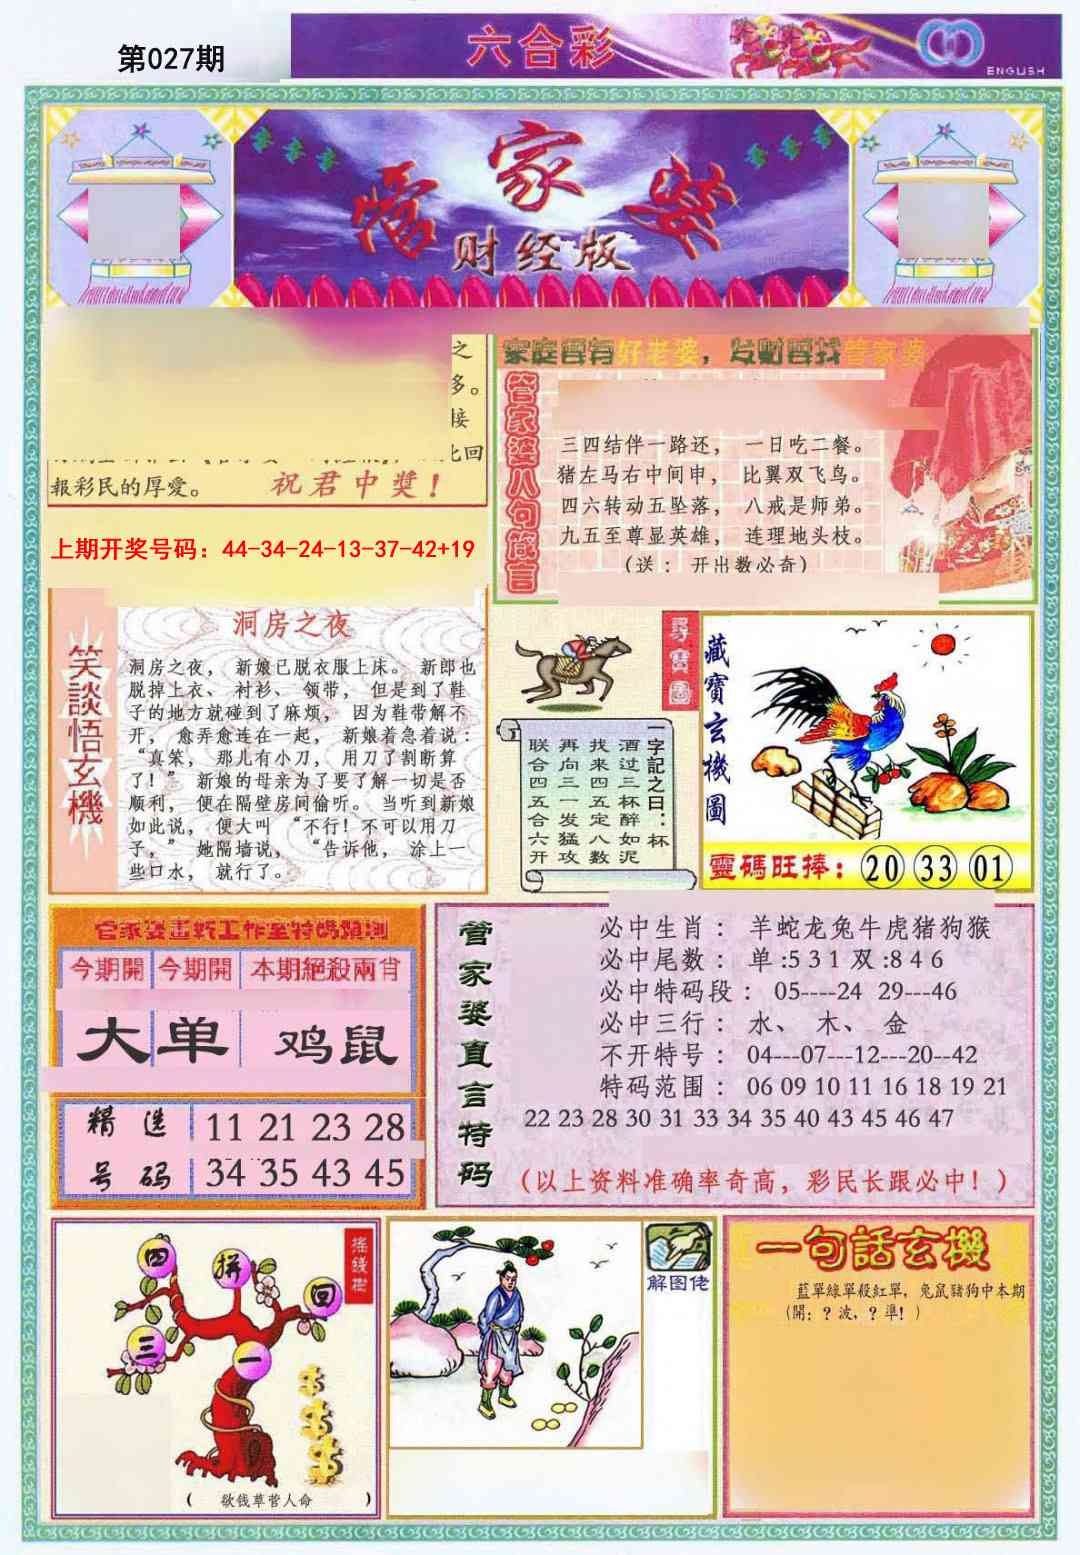 第027期
六合彩
ENGLISH
管家婆
财经版
之
多。
接
比回
報彩民的厚愛。 祝君中獎！
上期开奖号码：44-34-24-13-37-42+19
家庭要有好老婆，发财要找管家婆
管家婆八句箴言
三四结伴一路还， 一日吃二餐。
猪左马右中间申， 比翼双飞鸟。
四六转动五坠落， 八戒是师弟。
九五至尊显英雄， 连理地头枝。
（送： 开出数必奇）
笑談悟玄機
洞房之夜
洞房之夜， 新娘已脱衣服上床。 新郎也
脱掉上衣、 衬衫、 领带， 但是到了鞋
子的地方就碰到了麻烦， 因为鞋带解不
开， 愈弄愈连在一起， 新娘着急着说：
“真笨， 那儿有小刀， 用刀了割断算
了！” 新娘的母亲为了要了解一切是否
顺利， 便在隔壁房间偷听。 当听到新娘
如此说， 便大叫 “不行！不可以用刀
子，” 她隔墙说， “告诉他， 涂上一
些口水， 就行了。
尋寶圖
一字記之曰：杯
酒过三杯醉如泥
找来四五定八数
再向三一发猛攻
联合四五合六开
藏寶玄機圖
靈碼旺捧：20 33 01
管家婆畫新工作室特碼預測
今期開 今期開 本期絕殺兩肖
大 单 鸡鼠
精选号码
11 21 23 28
34 35 43 45
管家婆直言特码
必中生肖： 羊蛇龙兔牛虎猪狗猴
必中尾数： 单:5 3 1 双:8 4 6
必中特码段： 05----24 29---46
必中三行： 水、 木、 金
不开特号： 04---07---12---20--42
特码范围： 06 09 10 11 16 18 19 21
22 23 28 30 31 33 34 35 40 43 45 46 47
（以上资料准确率奇高，彩民长跟必中！）
摇錢樹
四 拼 回
三 一
（ 欲钱草菅人命 ）
解图佬
一句話玄機
藍單綠單殺紅單，兔鼠豬狗中本期
（開：？波，？準！）